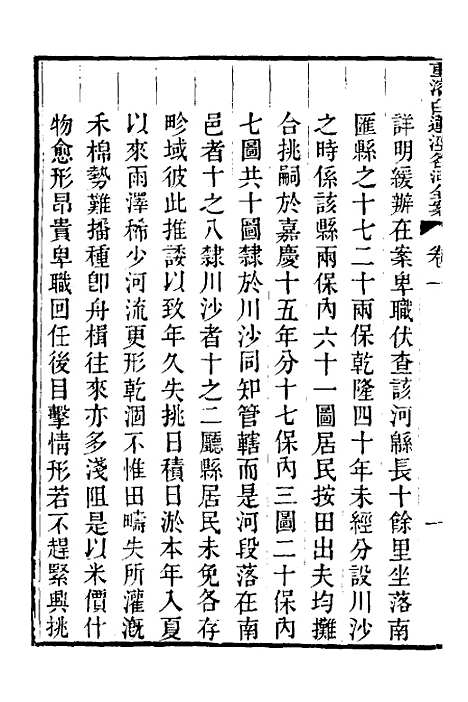 重濬白蓮涇各河全案 卷一 一
詳明緩辦在案卑職伏查該河緜長十餘里坐落南
匯縣之十七二十兩保乾隆四十年未經分設川沙
之時係該縣兩保內六十一圖居民按田出夫均攤
台挑嗣於嘉慶十五年分十七保內三圖二十保內
七圖共十圖隸於川沙同知管轄而是河段落在南
邑者十之八隸川沙者十之二廳縣居民未免各存
畛域彼此推諉以致年久失挑日積日淤本年入夏
以來雨澤稀少河流更形乾涸不惟田疇失所灌溉
禾棉勢難播種卽舟楫往來亦多淺阻是以米價什
物愈形昂貴卑職回任後目擊情形若不趕緊興挑